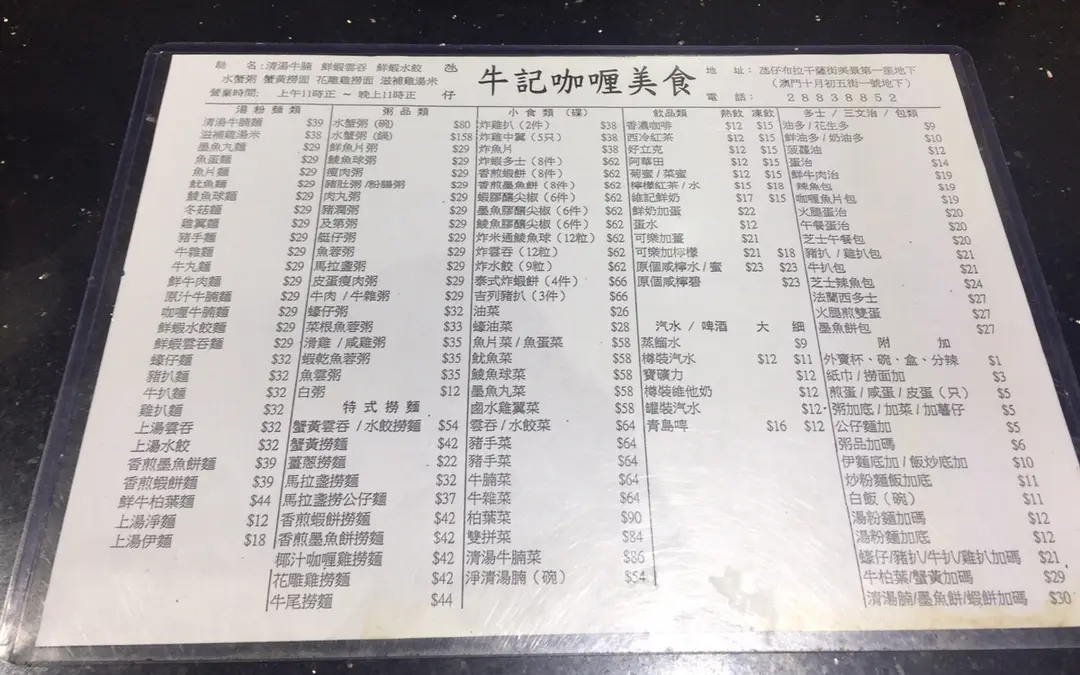 馳 名:清湯牛腩 鮮蝦雲吞 鮮蝦水餃
水蟹粥 蟹黃撈面 花雕雞撈面 滋補雞湯米
營業時間: 上午11時正 ~ 晚上11時正
氹仔
牛記咖喱美食
地 址: 氹仔布拉千薩街美景第一座地下
(澳門十月初五街一號地下)
電 話: 28838852
湯粉麵類
清湯牛腩麵 $39
滋補雞湯米 $38
墨魚丸麵 $29
魚蛋麵 $29
魚片麵 $29
魷魚麵 $29
鯪魚球麵 $29
冬菇麵 $29
雞翼麵 $29
豬手麵 $29
牛雜麵 $29
牛丸麵 $29
鮮牛肉麵 $29
原汁牛腩麵 $29
咖喱牛腩麵 $29
鮮蝦水餃麵 $29
鮮蝦雲吞麵 $29
蠔仔麵 $32
豬扒麵 $32
牛扒麵 $32
雞扒麵 $32
上湯雲吞 $32
上湯水餃 $32
香煎墨魚餅麵 $39
香煎蝦餅麵 $39
鮮牛柏葉麵 $44
上湯淨麵 $12
上湯伊麵 $18
粥品類
水蟹粥(碗) $80
水蟹粥(鍋) $158
鮮魚片粥 $29
鯪魚球粥 $29
瘦肉粥 $29
豬肚粥/粉腸粥 $29
肉丸粥 $29
豬潤粥 $29
及第粥 $29
艇仔粥 $29
魚蓉粥 $29
馬拉盞粥 $29
皮蛋瘦肉粥 $29
牛肉/牛雜粥 $29
蠔仔粥 $32
菜根魚蓉粥 $33
滑雞/咸雞粥 $35
蝦乾魚蓉粥 $35
魚雲粥 $35
白粥 $12
特式撈麵
蟹黃雲吞/水餃撈麵 $54
蟹黃撈麵 $42
薑蔥撈麵 $22
馬拉盞撈麵 $32
馬拉盞撈公仔麵 $37
香煎蝦餅撈麵 $42
香煎墨魚餅撈麵 $42
椰汁咖喱雞撈麵 $42
花雕雞撈麵 $42
牛尾撈麵 $44
小食類(碟)
炸雞扒(2件) $38
炸雞中翼(5只) $38
炸魚片 $38
炸蝦多士(8件) $62
香煎蝦餅(8件) $62
香煎墨魚餅(8件) $62
蝦膠釀尖椒(6件) $62
墨魚膠釀尖椒(6件) $62
鯪魚膠釀尖椒(6件) $62
炸米通鯪魚球(12粒) $62
炸雲吞(12粒) $62
炸水餃(9粒) $62
泰式炸蝦餅(4件) $66
吉列豬扒(3件) $66
油菜 $26
蠔油菜 $28
魚片菜/魚蛋菜 $58
魷魚菜 $58
鯪魚球菜 $58
墨魚丸菜 $58
鹵水雞翼菜 $58
雲吞/水餃菜 $64
豬手菜 $64
豬手菜 $64
牛腩菜 $64
牛雜菜 $64
柏葉菜 $90
雙拼菜 $84
清湯牛腩菜 $86
淨清湯腩(碗) $54
飲品類 熱飲 凍飲
香濃咖啡 $12 $15
西冷紅茶 $12 $15
好立克 $12 $15
阿華田 $12 $15
菊蜜/菜蜜 $12 $15
檸檬紅茶/水 $15 $18
維記鮮奶 $17 $15
鮮奶加蛋 $22
蛋水 $12
可樂加薑 $21
可樂加檸檬 $21 $18
原個咸檸水/蜜 $23 $23
原個咸檸碧 $23
汽水/啤酒 大 細
蒸餾水 $9
樽裝汽水 $12 $11
寶礦力 $12
樽裝維他奶 $12
罐裝汽水 $12
青島啤 $16 $12
多士/三文治/包類
油多/花生多 $9
鮮油多/奶油多 $10
菠蘿油 $12
蛋治 $14
鮮牛肉治 $19
辣魚包 $19
咖喱魚片包 $19
火腿蛋治 $20
午餐蛋治 $20
芝士午餐包 $20
豬扒/雞扒包 $21
牛扒包 $21
芝士辣魚包 $24
法蘭西多士 $27
火腿煎雙蛋 $27
墨魚餅包 $27
附 加
外賣杯、碗、盒、分辣 $1
紙巾/撈面加 $3
煎蛋/咸蛋/皮蛋(只) $5
粥加底/加菜/加薯仔 $5
公仔麵加 $5
粥品加碼 $6
伊麵底加/飯炒底加 $10
炒粉麵飯加底 $11
白飯(碗) $11
湯粉麵加碼 $12
湯粉麵加底 $12
蠔仔/豬扒/牛扒/雞扒加碼 $21
牛柏葉/蟹黃加碼 $29
清湯腩/墨魚餅/蝦餅加碼 $30